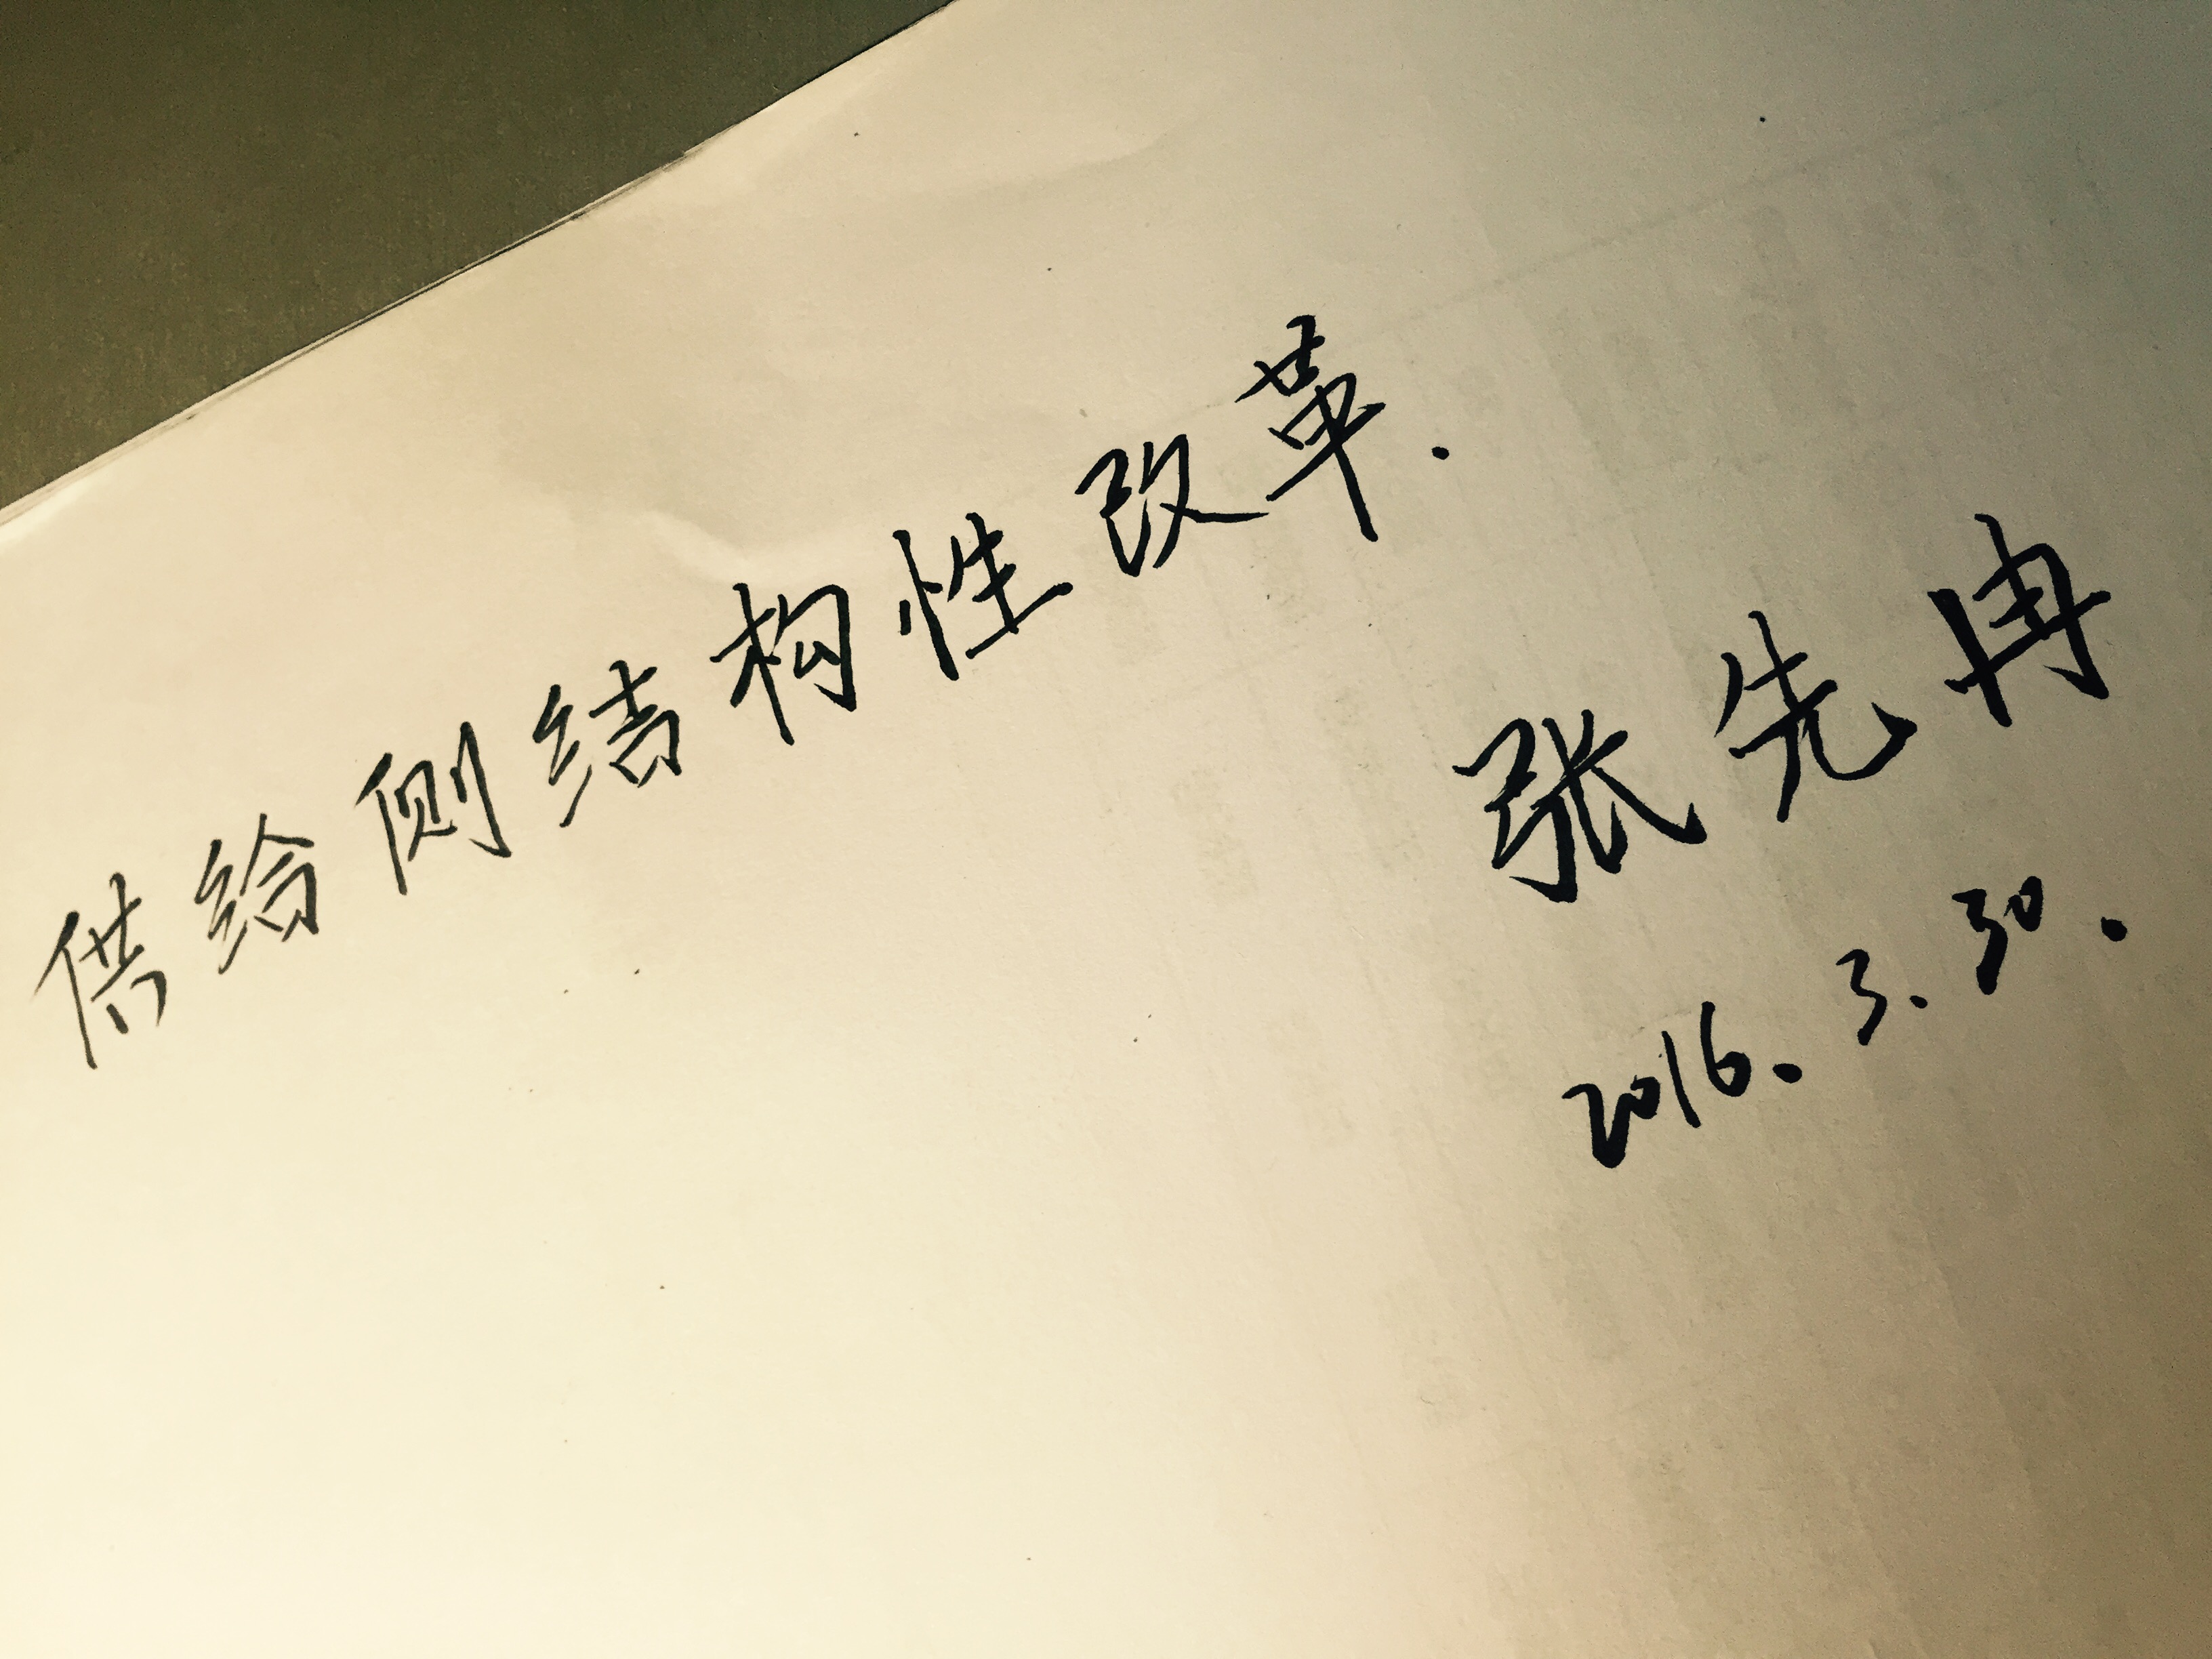 供给侧结构性改革.
张先冉
2016.3.30.